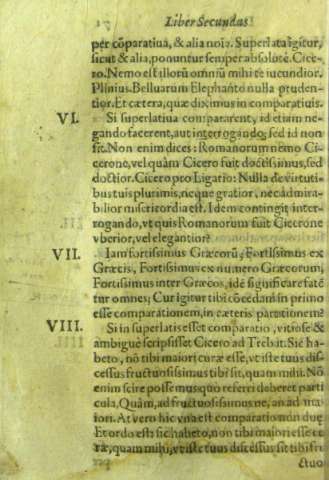 Liber Secundus
per cõparatiua, & alia noĩa. Superlata igitur,
sicut & alia, ponuntur semper absolutè. Cice-
ro. Nemo est illorũ omniũ mihi te iucundior.
Plinius. Belluarum Elephanto nulla pruden-
tior. Et cætera, quæ diximus in comparatiuis.
VI. Si superlatiua compararent, id etiam ne-
gando facerent, aut interrogando; sed id non
fit. Non enim dices: Romanorum nemo Ci-
cerone, vel quàm Cicero fuit doctissimus, sed
doctior. Cicero pro Ligario: Nulla de virtuti-
bus tuis plurimis, neque gratior, nec admira-
bilior misericordia est. Idem contingit inter-
rogando, vt quis Romanorum fuit Cicerone
vberior, vel elegantior?
VII. Iam fortissimus Græcorũ, Fortissimus ex
Græcis, Fortissimus ex numero Græcorum,
Fortissimus inter Græcos, idẽ significare fatẽ
tur omnes; Cur igitur tibi cõcedam in primo
esse comparationem, in cæteris partitionem?
VIII. Si in superlatis esset comparatio, vitiosè &
ambiguè scripsisset Cicero ad Trebat. Sic ha-
beto, nõ tibi maiori curæ esse, vt iste tuus dis-
cessus fructuosissimus tibi sit, quam mihi. Nõ
enim scire possemus quo referri deberet parti
cula, Quàm, ad fructuosissimus ne, an ad ma-
iori. At vero hîc vna est comparatio non duę
Et ordo est: sic habeto, non tibi maiori esse cu
ræ, quam mihi, vt iste tuus discessus sit tibi fru
ctuo